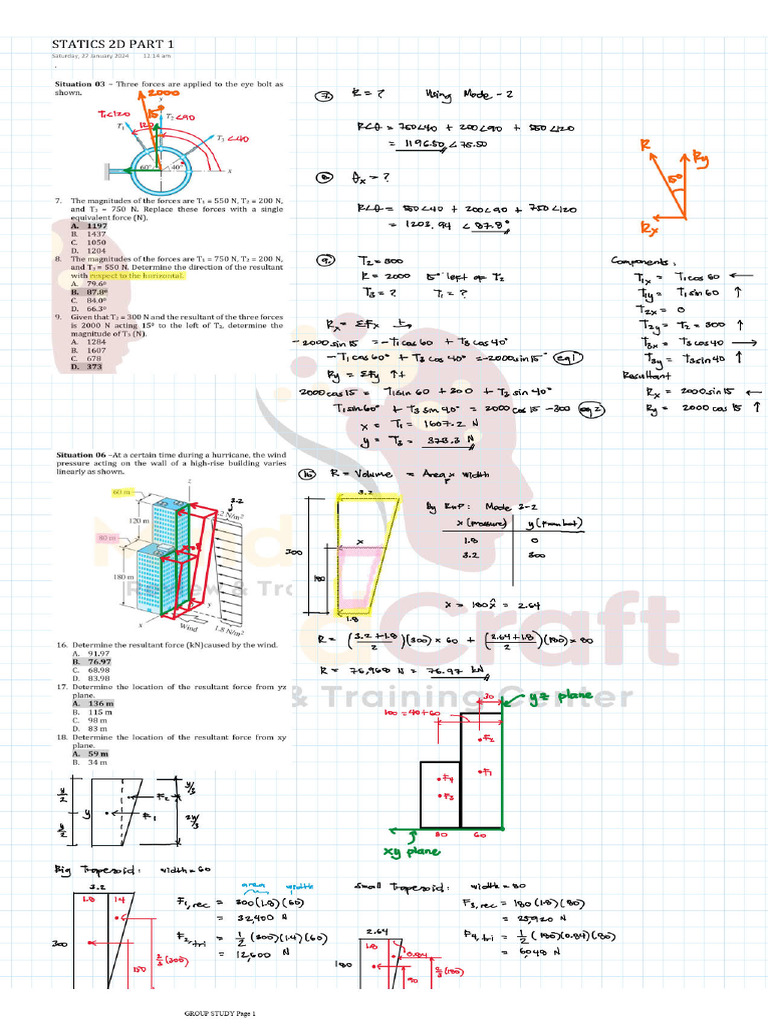 STATICS 2D PART 1
Saturday, 27 January 2024 12:14 am
Situation 03 – Three forces are applied to the eye bolt as
shown.
2000
y
T1<120
15°
T2 <90
120
T1
T2
T3 <40
60°
40°
x
7. The magnitudes of the forces are T1 = 550 N, T2 = 200 N,
and T3 = 750 N. Replace these forces with a single
equivalent force (N).
A. 1197
B. 1437
C. 1050
D. 1284
8. The magnitudes of the forces are T1 = 750 N, T2 = 200 N,
and T3 = 550 N. Determine the direction of the resultant
with respect to the horizontal.
A. 79.6°
B. 87.8°
C. 84.0°
D. 66.3°
9. Given that T2 = 300 N and the resultant of the three forces
is 2000 N acting 15° to the left of T2, determine the
magnitude of T3 (N).
A. 1284
B. 1607
C. 678
D. 373
7. R = ? Using Mode - 2
R∠θ = 750∠40 + 200∠90 + 550∠120
= 1196.50 ∠75.50
8. θx = ?
R∠θ = 550∠40 + 200∠90 + 750∠120
= 1203.94 ∠87.8°
9. T2 = 300
R = 2000 15° left of T2
T3 = ? T1 = ?
Rx = ΣFx
-2000 sin 15 = -T1 cos 60 + T3 cos 40°
-T1 cos 60° + T3 cos 40° = -2000 sin 15° eq 1
Ry = ΣFy ↑+
2000 cos 15 = T1 sin 60 + 300 + T3 sin 40°
T1 sin 60° + T3 sin 40° = 2000 cos 15 - 300 eq 2
x = T1 = 1607.2 N
y = T3 = 373.3 N
R
Ry
Rx
Components:
T1x = T1 cos 60 ←
T1y = T1 sin 60 ↑
T2x = 0
T2y = T2 = 300 ↑
T3x = T3 cos 40 →
T3y = T3 sin 40 ↑
Resultant
Rx = 2000 sin 15 ←
Ry = 2000 cos 15 ↑
Situation 06 –At a certain time during a hurricane, the wind
pressure acting on the wall of a high-rise building varies
linearly as shown.
60 m
z
3.2
120 m
80 m
180 m
x
y
Wind
1.8 N/m²
16. Determine the resultant force (kN)caused by the wind.
A. 91.97
B. 76.97
C. 68.98
D. 83.98
17. Determine the location of the resultant force from yz
plane.
A. 136 m
B. 115 m
C. 98 m
D. 83 m
18. Determine the location of the resultant force from xy
plane.
A. 59 m
B. 34 m
16. R = Volume = Area x width
3.2
300
x
180
1.8
By R=P: Mode 3-2
x (pressure) y (from bot)
1.8 0
3.2 300
x = 180x̂ = 2.64
R = (3.2 + 1.8 / 2)(300) × 60 + (2.64 + 1.8 / 2)(180) × 80
R = 76,968 N = 76.97 kN
Review & Training Center
30
yz plane
100 = 40+60
F2
F4
F1
F3
80 60
xy plane
y/2
y
y/2
F2
F1
y/3
2y/3
Big Trapezoid: width = 60
3.2
1.8 1.4
300
150
2/3 (300)
area width
F1,rec = 300(1.8)(60)
= 32,400 N
F2,tri = 1/2 (300)(1.4)(60)
= 12,600 N
small Trapezoid: width = 80
2.64
1.8 0.84
180
90
2/3 (180)
F3,rec = 180(1.8)(80)
= 25,920 N
F4,tri = 1/2 (180)(0.84)(80)
= 6048 N
GROUP STUDY Page 1